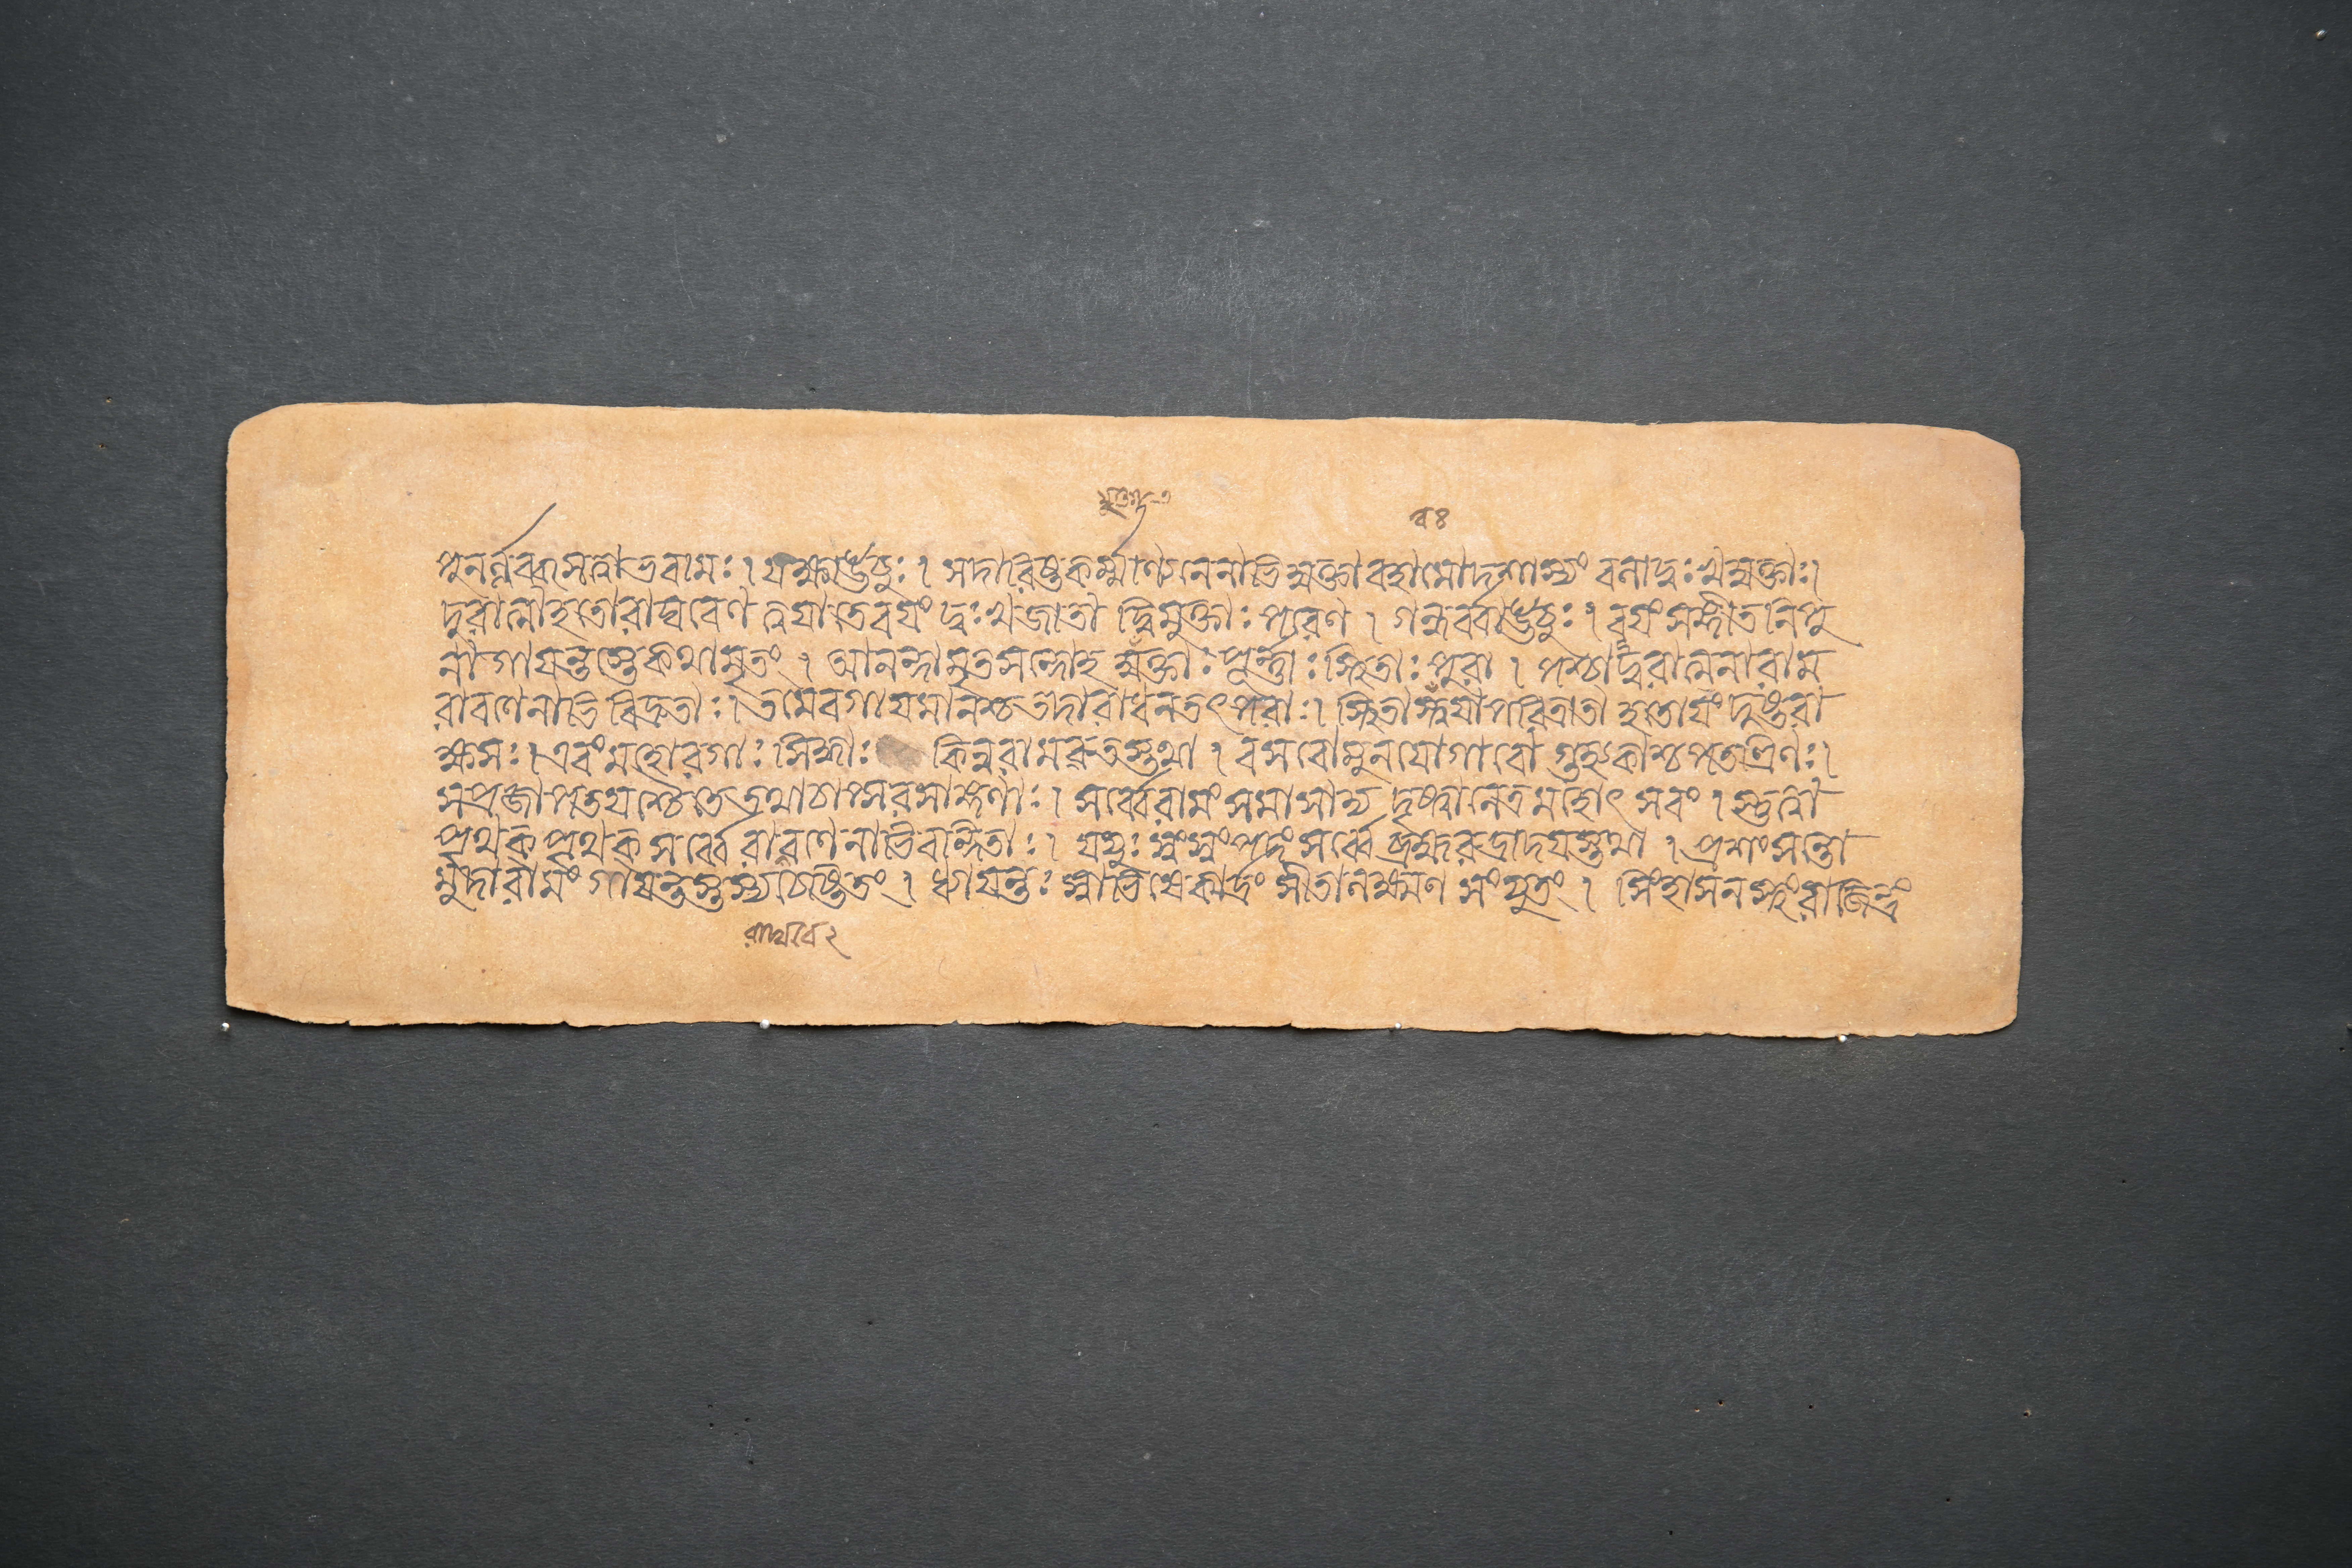 পুনর্ন্নবত্বসত্তাভবামঃ। যক্ষাঊচুঃ। সদাবিষ্টকর্ম্মাণ্যনেনাভিযুক্তাবহামোদশাস্যং বনাদুঃখযুক্তাঃ।
দুরাত্মাহতোরাঘবেণ ত্বযাতেবযং দুঃখজাতা দ্বিমুক্তাঃ পরেণ। গন্ধর্ব্বাঊচুঃ। বযং সঙ্গীতনিপু
নাগাযন্তস্তেকথামৃতং। আনন্দামৃতসন্দোহ যুক্তাঃ পূর্ন্নাঃ স্থিতাঃ পুরা। পশ্চাদ্দুরাত্মনারাম
রাবণেনাভিবিদ্রুতাঃ। তমেবগাযমানশ্চতদারাধনতৎপরাঃ। স্থিতাস্ত্বযাপরিত্রাতা হতোযংদুষ্টরা
ক্ষসঃ। এবংমহোরগাঃ সিদ্ধাঃ কিন্নরামরুতস্তথা। বসবোমুনযোগাবো গুহ্যকাশ্চপতত্রিণঃ।
সপ্রজাপতযশ্চৈতেতথাচাপ্সরসাঙ্গণাঃ। সর্ব্বেরামংসমাসাদ্য দৃষ্ট্বানেত্রমহোৎসবং। স্তুত্বা
পৃথক পৃথক সর্ব্বে রাবণেনাভিবন্দিতাঃ। যযুঃ স্বংস্বংপদংসর্ব্বেব্রহ্মরুদ্রাদযস্তথা। প্রশংসন্তো
মুদারামংগাযন্তস্তস্যচেষ্টিতং। ধ্যাযন্তঃ স্বাভিষেকার্দ্রং সীতালক্ষ্মণ সংযুতং। সিংহাসনস্থংরাজেন্দ্রং
রাঘবে২